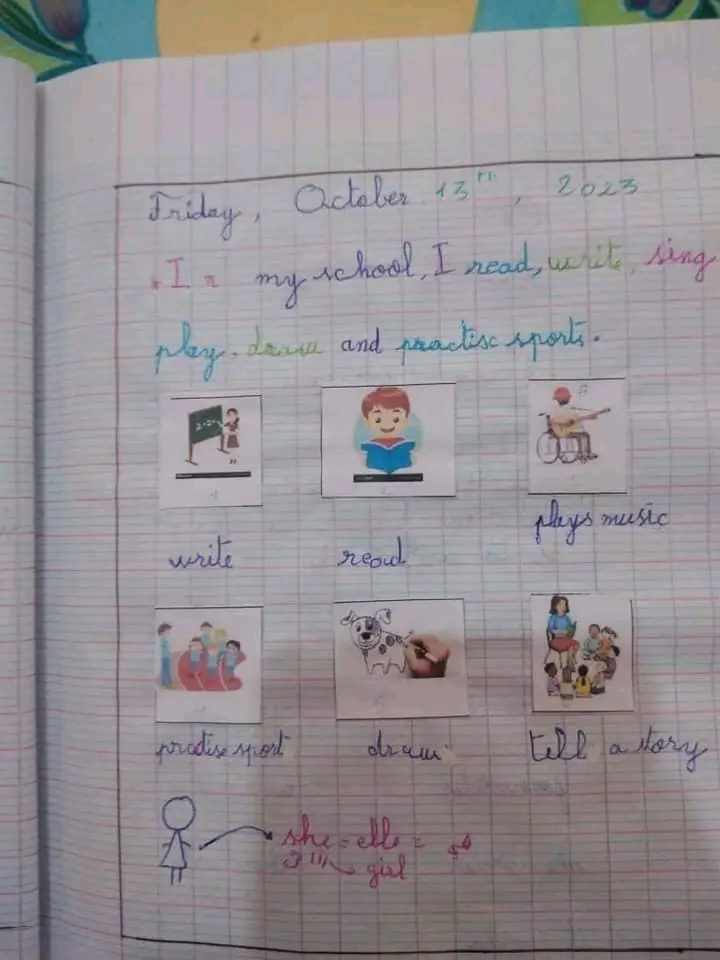 Friday, October 13th, 2023
* In my school, I read, write, sing
play, draw and practise sports.
write
read
plays music
practise sport
draw
tell a story
she = elle =
girl